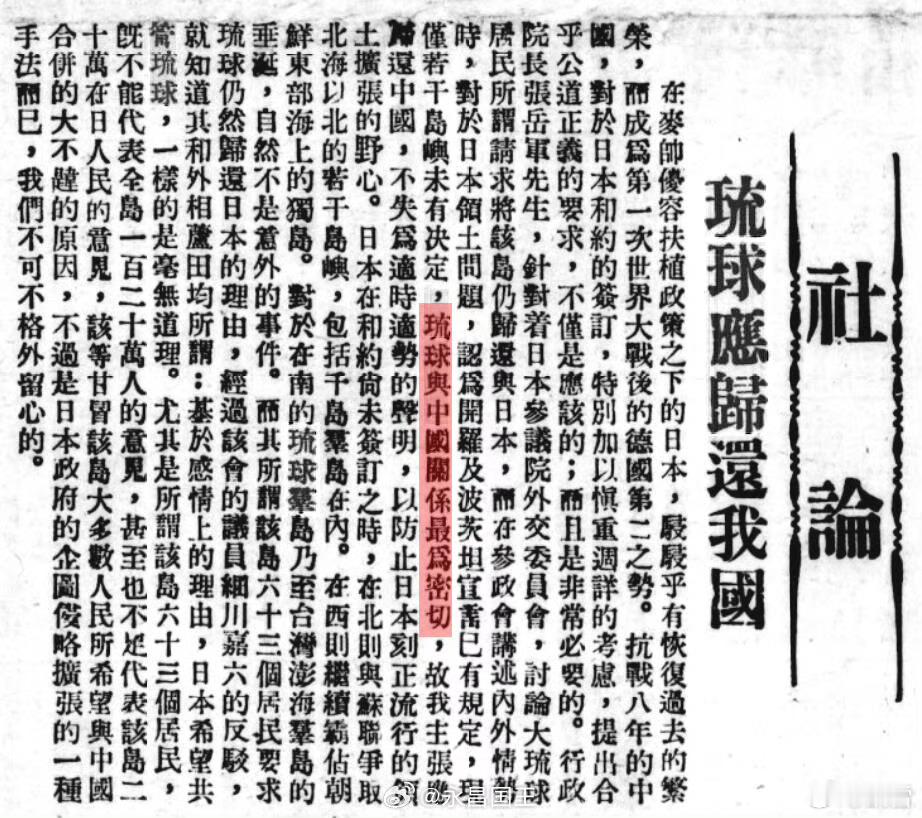 社論
琉球應歸還我國
在麥帥優容扶植政策之下的日本，駸駸乎有恢復過去的繁
榮，而成爲第一次世界大戰後的德國第二之勢。抗戰八年的中
國，對於日本和約的簽訂，特別加以愼重週詳的考慮，提出合
乎公道正義的要求，不僅是應該的；而且是非常必要的。行政
院長張岳軍先生，針對着日本參議院外交委員會，討論大琉球
居民所謂請求將該島仍歸還與日本，而在參政會講述內外情勢
時，對於日本領土問題，認爲開羅及波茨坦宣言已有規定，現
僅若干島嶼未有决定，琉球與中國關係最爲密切，故我主張應
歸還中國，不失爲適時適勢的聲明，以防止日本刻正流行的領
土擴張的野心。日本在和約尙未簽訂之時，在北則與蘇聯爭取
北海以北的若干島嶼，包括千島羣島在內。在西則繼續霸佔朝
鮮東部海上的獨島。對於在南的琉球羣島乃至台灣澎海羣島的
垂涎，自然不是意外的事件。而其所謂該島六十三個居民要求
琉球仍然歸還日本的理由，經過該會的議員細川嘉六的反駁，
就知道其和外相蘆田均所謂：基於感情上的理由，日本希望共
管琉球，一樣的是毫無道理。尤其是所謂該島六十三個居民，
旣不能代表全島一百二十萬人的意見，甚至也不足代表該島二
十萬在日人民的意見，該等甘冒該島大多數人民所希望與中國
合併的大不韙的原因，不過是日本政府的企圖侵略擴張的一種
手法而已，我們不可不格外留心的。
@永昌国王